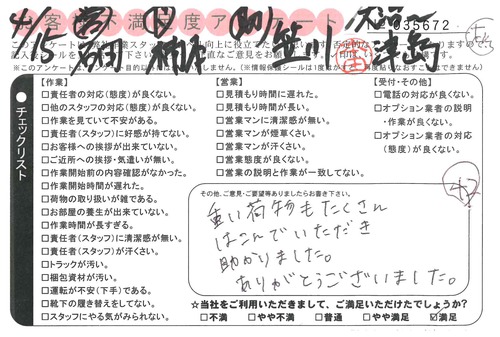 4/15
035672
このアンケートは
【作業】
□責任者の対応(態度)が良くない。
□他のスタッフの対応(態度)が良くない。
□作業を見ていて不安がある。
□責任者(スタッフ)に好感が持てない。
□お客様への挨拶が出来ていない。
□ご近所への挨拶・気遣いが無い。
□作業開始前の内容確認がなかった。
□作業開始時間が遅れた。
□荷物の取り扱いが雑である。
□お部屋の養生が出来ていない。
□作業時間が長すぎる。
□責任者(スタッフ)に清潔感が無い。
□責任者(スタッフ)が汗くさい。
□トラックが汚い。
□梱包資材が汚い。
□運転が不安(下手)である。
□靴下の履き替えをしてない。
□スタッフにやる気がみられない。
【営業】
□見積もり時間に遅れた。
□見積もり時間が長い。
□営業マンに清潔感が無い。
□営業マンが煙草くさい。
□営業マンが汗くさい。
□営業態度が良くない。
□営業の説明と作業が一致してない。
【受付・その他】
□電話の対応が良くない。
□オプション業者の説明
・作業が良くない。
□オプション業者の対応
(態度)が良くない。
●チェックリスト
その他、ご意見・ご要望等ありましたらお書き下さい。
重い荷物もたくさん
はこんでいただき
助かりました。
ありがとうございました。
☆当社をご利用いただきまして、ご満足いただけたでしょうか?
□不満 □やや不満 □普通 □やや満足 ☑満足